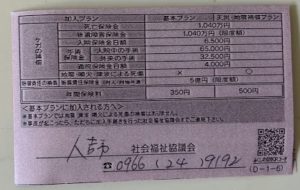 加入プラン 基本プラン 天災・地震補償プラン
ケガの補償
死亡保険金 1,040万円
後遺障害保険金 1,040万円(限度額)
入院保険金日額 6,500円
手術保険金 入院中の手術 65,000円
外来の手術 32,500円
通院保険金日額 4,000円
地震・噴火・津波による死傷 × ○
5億円(限度額)
年間保険料 350円 500円
<基本プランに加入される方へ>
人吉市 社会福祉協議会
☎ 0966 (24) 9192
(D-1-6)